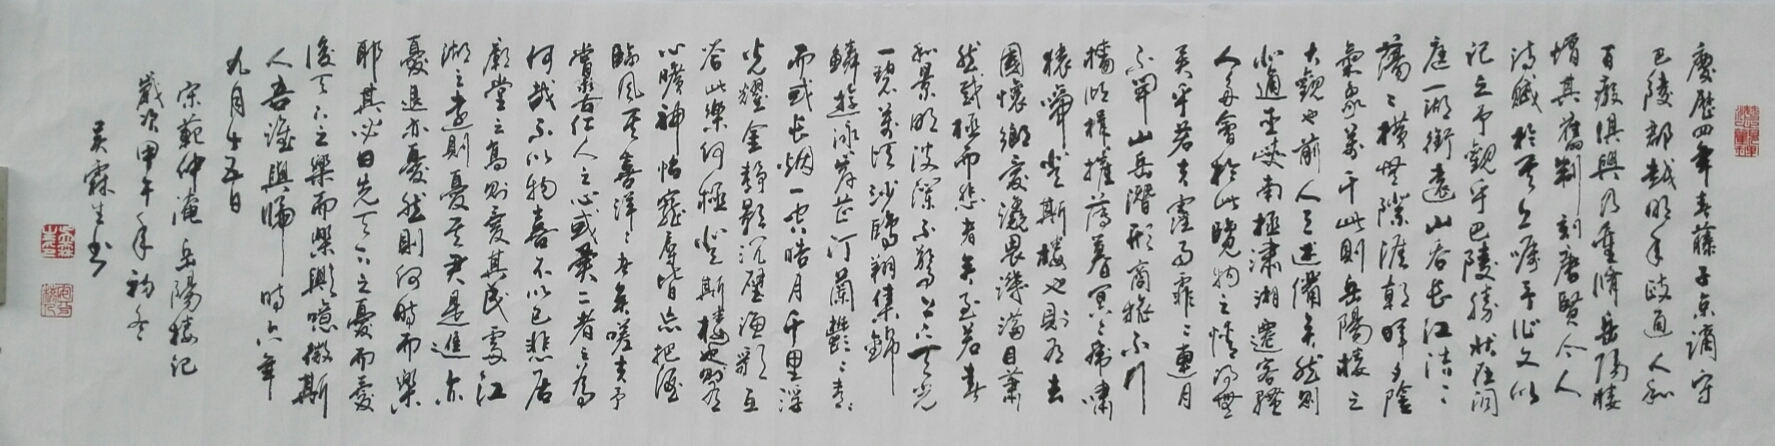 慶歷四年春滕子京謫守
巴陵郡越明年政通人和
百廢俱興乃重脩岳陽樓
增其舊制刻唐賢今人
詩賦於其上囑予作文以
記之予觀乎巴陵勝狀在洞
庭一湖銜遠山吞長江浩浩
蕩蕩橫無隙涯朝暉夕陰
氣象萬千此則岳陽樓之
大觀也前人之述備矣然則
北通巫峽南極瀟湘遷客騷
人多會於此覽物之情得無
異乎若夫霪雨霏霏連月
不開山岳潛形商旅不行
檣傾楫摧薄暮冥冥虎嘯
猿啼登斯樓也則有去
國懷鄉憂讒畏譏滿目蕭
然感極而悲者矣至若春
和景明波瀾不驚上下天光
一碧萬頃沙鷗翔集錦
鱗游泳岸芷汀蘭鬱鬱青青
而或長烟一空皓月千里浮
光耀金靜影沉璧漁歌互
答此樂何極登斯樓也則有
心曠神怡寵辱皆忘把酒
臨風其喜洋洋者矣嗟夫予
嘗求古仁人之心或異二者之為
何哉不以物喜不以己悲居
廟堂之高則憂其民處江
湖之遠則憂其君是進亦
憂退亦憂然則何時而樂
耶其必曰先天下之憂而憂
後天下之樂而樂歟噫微斯
人吾誰與歸 時六年
九月十五日
宋範仲淹 岳陽樓記
歲次甲午年初冬
吳霖生書